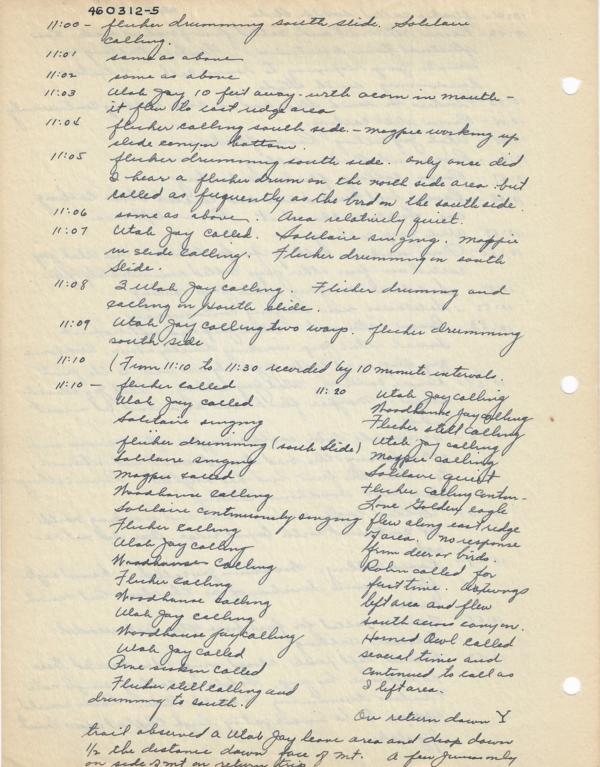 460312-5
11:00 - flicker drumming south slide. Solitaire
calling.
11:01 same as above
11:02 same as above
11:03 Utah Jay 10 feet away - with acorn in mouth -
it flew to east ridge area
11:04 flicker calling south side. - magpie working up
slide canyon bottom.
11:05 flicker drumming south side. only once did
I hear a flicker drum on the north side area but
called as frequently as the bird on the south side.
11:06 same as above. Area relatively quiet.
11:07 Utah Jay called. Solitaire singing. Magpie
in slide calling. Flicker drumming on south
Slide.
11:08 2 Utah Jay calling. Flicker druming and
calling on south slide.
11:09 Utah Jay calling two ways. flicker drumming
south side
11:10 (From 11:10 to 11:30 recorded by 10 minute intervals.
11:10 - flicker called
Utah Jay called
Solitaire singing
flicker drumming (south Slide)
Solitaire singing
Magpie called
Woodhouse calling
Solitaire continuously singing
Flicker calling
Utah Jay calling
Woodhouse calling
Flicker calling
Woodhouse calling
Utah Jay calling
Woodhouse jay calling
Utah Jay called
Pine siskin called
Flicker still calling and
drumming to south.
11:20 Utah Jay calling
Woodhouse Jay calling
Flicker still calling
Utah Jay calling
Magpie calling
Solitaire quiet
Flicker calling
Lone Golden eagle
flew along east ridge
of area. no response
from deer or birds.
Robin called for
first time. Waxwings
left area and flew
south across canyon.
Horned Owl called
several times and
continued to call as
I left area.
On return down Y
trail observed a Utah Jay leave area and drop down
1/2 the distance down face of mt. A few Juncos only
on side of mt on return trip.